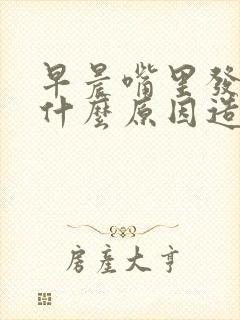 早晨嘴里發
什麼原因造
房產大亨